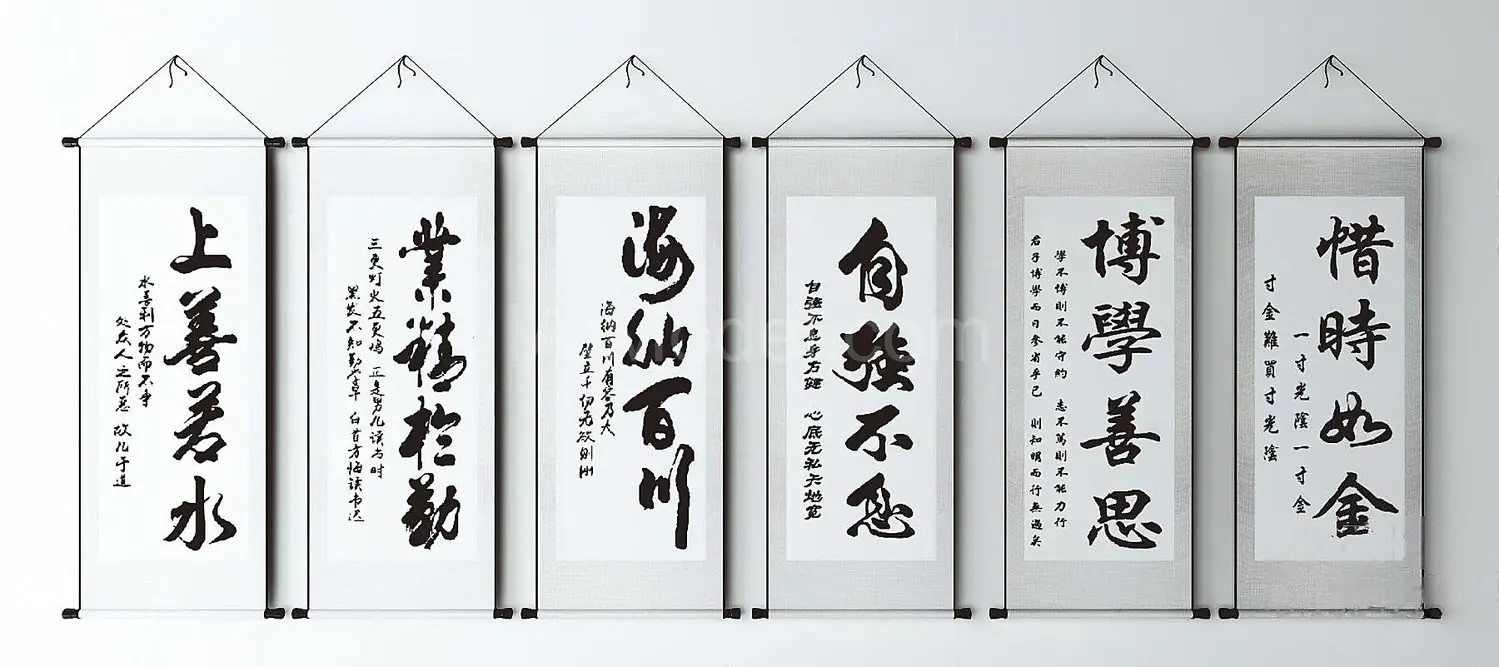 上善若水
水善利万物而不争
处众人之所恶 故几于道
業精於勤
三更灯火五更鸡 正是男儿读书时
黑发不知勤学早 白首方悔读书迟
海納百川
海纳百川有容乃大
壁立千仞无欲则刚
自強不息
自強不息 心底无私天地宽
博學善思
學不博則不能守約 志不篤則不能力行
君子博學而日參省乎己 則知明而行無過矣
惜時如金
一寸光陰一寸金
寸金難買寸光陰